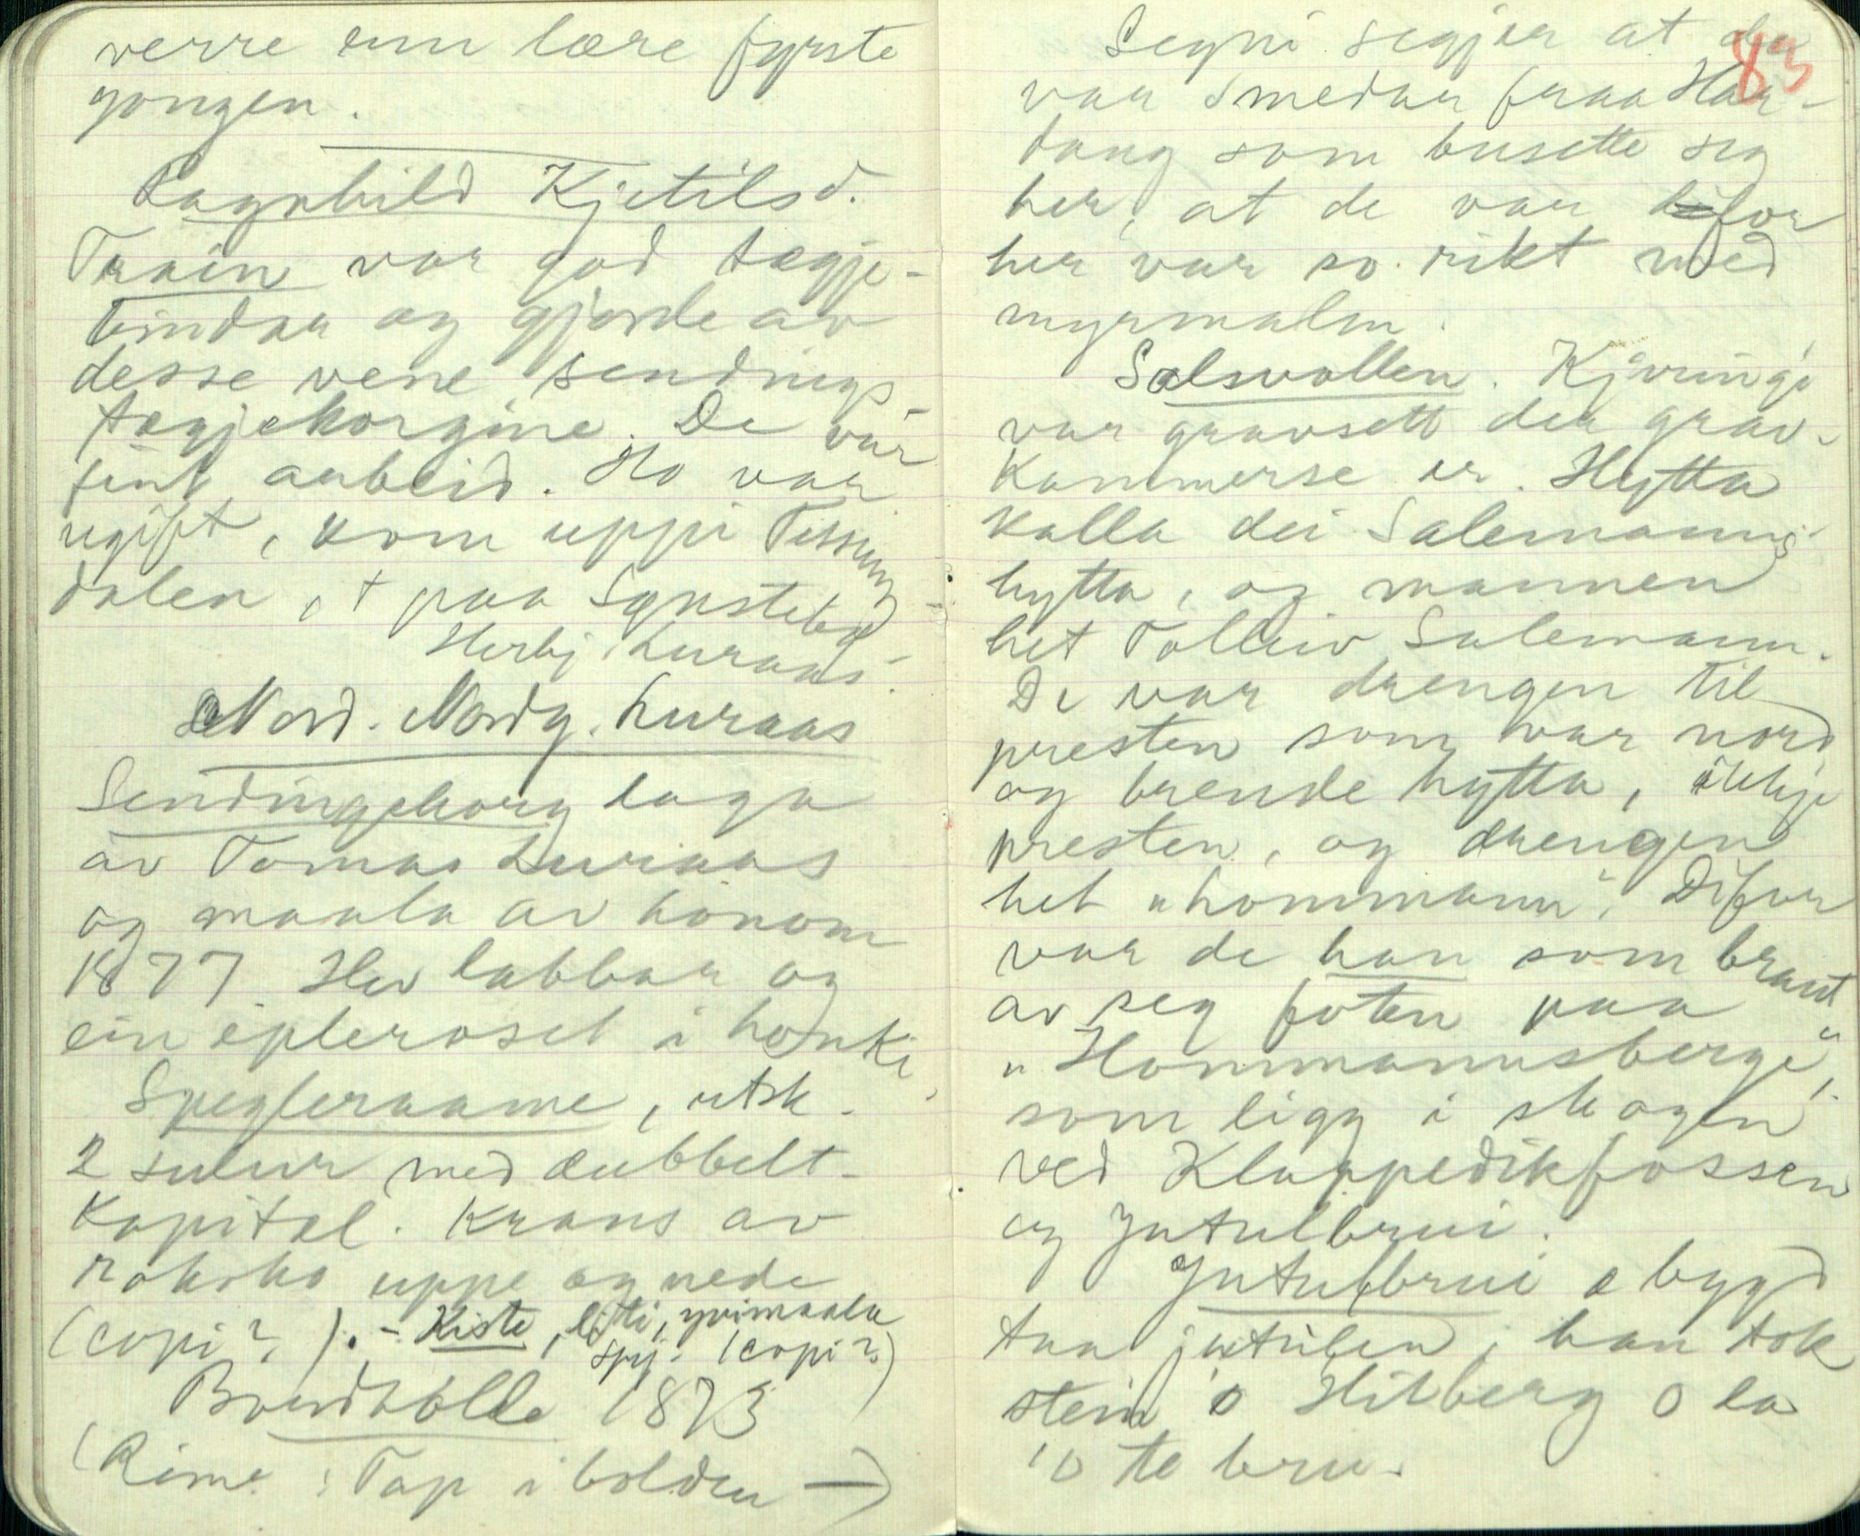 verre enn lære fyrste
gongen.
Ragnhild Kjetilsd.
Traain var god tægje-
bindar og gjorde av
desse vene sendings-
tægjekorgine. De var
fint arbeid. Ho var
ugift, kom uppi Tessung-
dalen, † paa Synstebø
Herbj. Luraas.
Nord. Nordg. Luraas
Sendingskorg laga
av Tomas Luraas
og maala av honom
1877. Hev labbar og
ein epleroset i honki.
Spegleraame, utsk.
2 sulur med dubbelt-
kapitæl. Krans av
rokoko uppe og nede
(copi?). - Kiste, liti, yvimaala
spj. (copi?)
Brendebolle 1873
(Rime: Tap i bolden —)
83
Segni segjer at de
var smedar fraa Har-
dang som busette seg
her, at de var difor
her var so rikt med
myrmalm.
Salsvollen. Kjæringi
var gravsett der grav-
kammerse er. Hytta
kalla dei Salemanns-
hytta, og mannen
het Tolleiv Salemann.
De var drengen til
presten som var nord
og brende hytta, ikkje
presten, og drengen
het "Hommann". Difor
var de han som braut
av seg foten paa
"Hommannsbergi",
som ligg i skogen
ved Kloppedikfossen
og Jutulbrui.
Jutulbrui æ bygd
taa jutulen, han tok
stein o Hilberg o la
'o te bru.